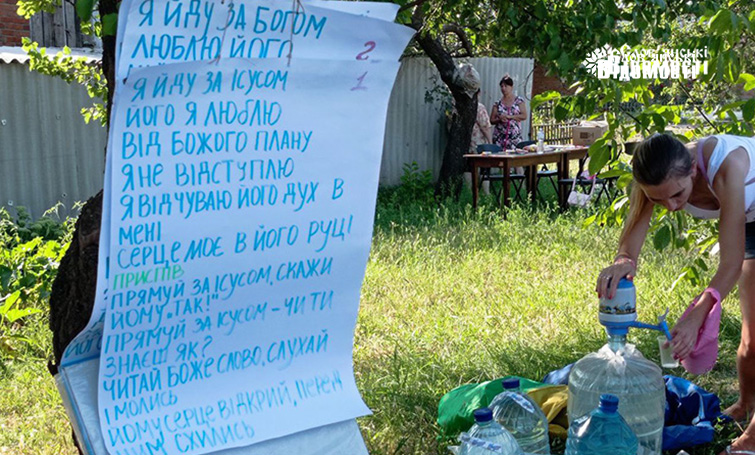 Я ЙДУ ЗА БОГОМ
ЛЮБЛЮ ЙОГО
2
Я ЙДУ ЗА ІСУСОМ
1
ЙОГО Я ЛЮБЛЮ
ВІД БОЖОГО ПЛАНУ
Я НЕ ВІДСТУПЛЮ
Я ВІДЧУВАЮ ЙОГО ДУХ В
МЕНІ
СЕРЦЕ МОЄ В ЙОГО РУЦІ
ПРИСПІВ
ПРЯМУЙ ЗА ІСУСОМ, СКАЖИ
ЙОМУ „ТАК!"
ПРЯМУЙ ЗА ІСУСОМ - ЧИ ТИ
ЗНАЄШ ЯК?
ЧИТАЙ БОЖЕ СЛОВО, СЛУХАЙ
І МОЛИСЬ
ЙОМУ СЕРЦЕ ВІДКРИЙ, ПЕРЕД
НИМ СХИЛИСЬ
ВІДОМОСТІ